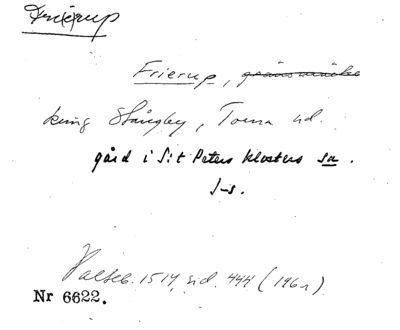 Frierup
Frierup,
kring Stångby, Torna hd.
gård i S:t Peters klosters sn.
J-s.
Palteb. 1514, sid. 444 (1961)
Nr 6622.